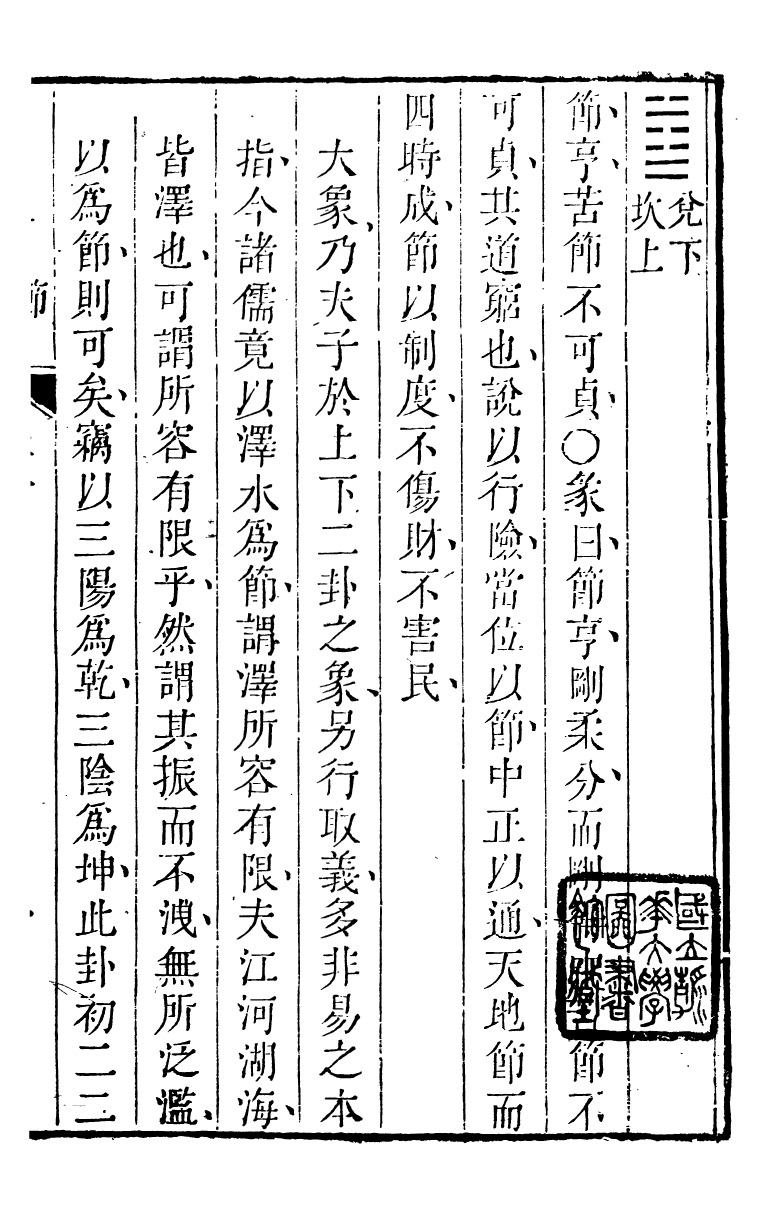 ䷻兌下
坎上
節亨苦節不可貞○彖曰節亨剛柔分而剛得中苦節不
可貞其道窮也說以行險當位以節中正以通天地節而
四時成節以制度不傷財不害民
大象乃夫子於上下二卦之象另行取義多非易之本
指今諸儒竟以澤水爲節謂澤所容有限夫江河湖海
皆澤也可謂所容有限乎然謂其振而不洩無所泛濫
以爲節則可矣竊以三陽爲乾三陰爲坤此卦初二二
節